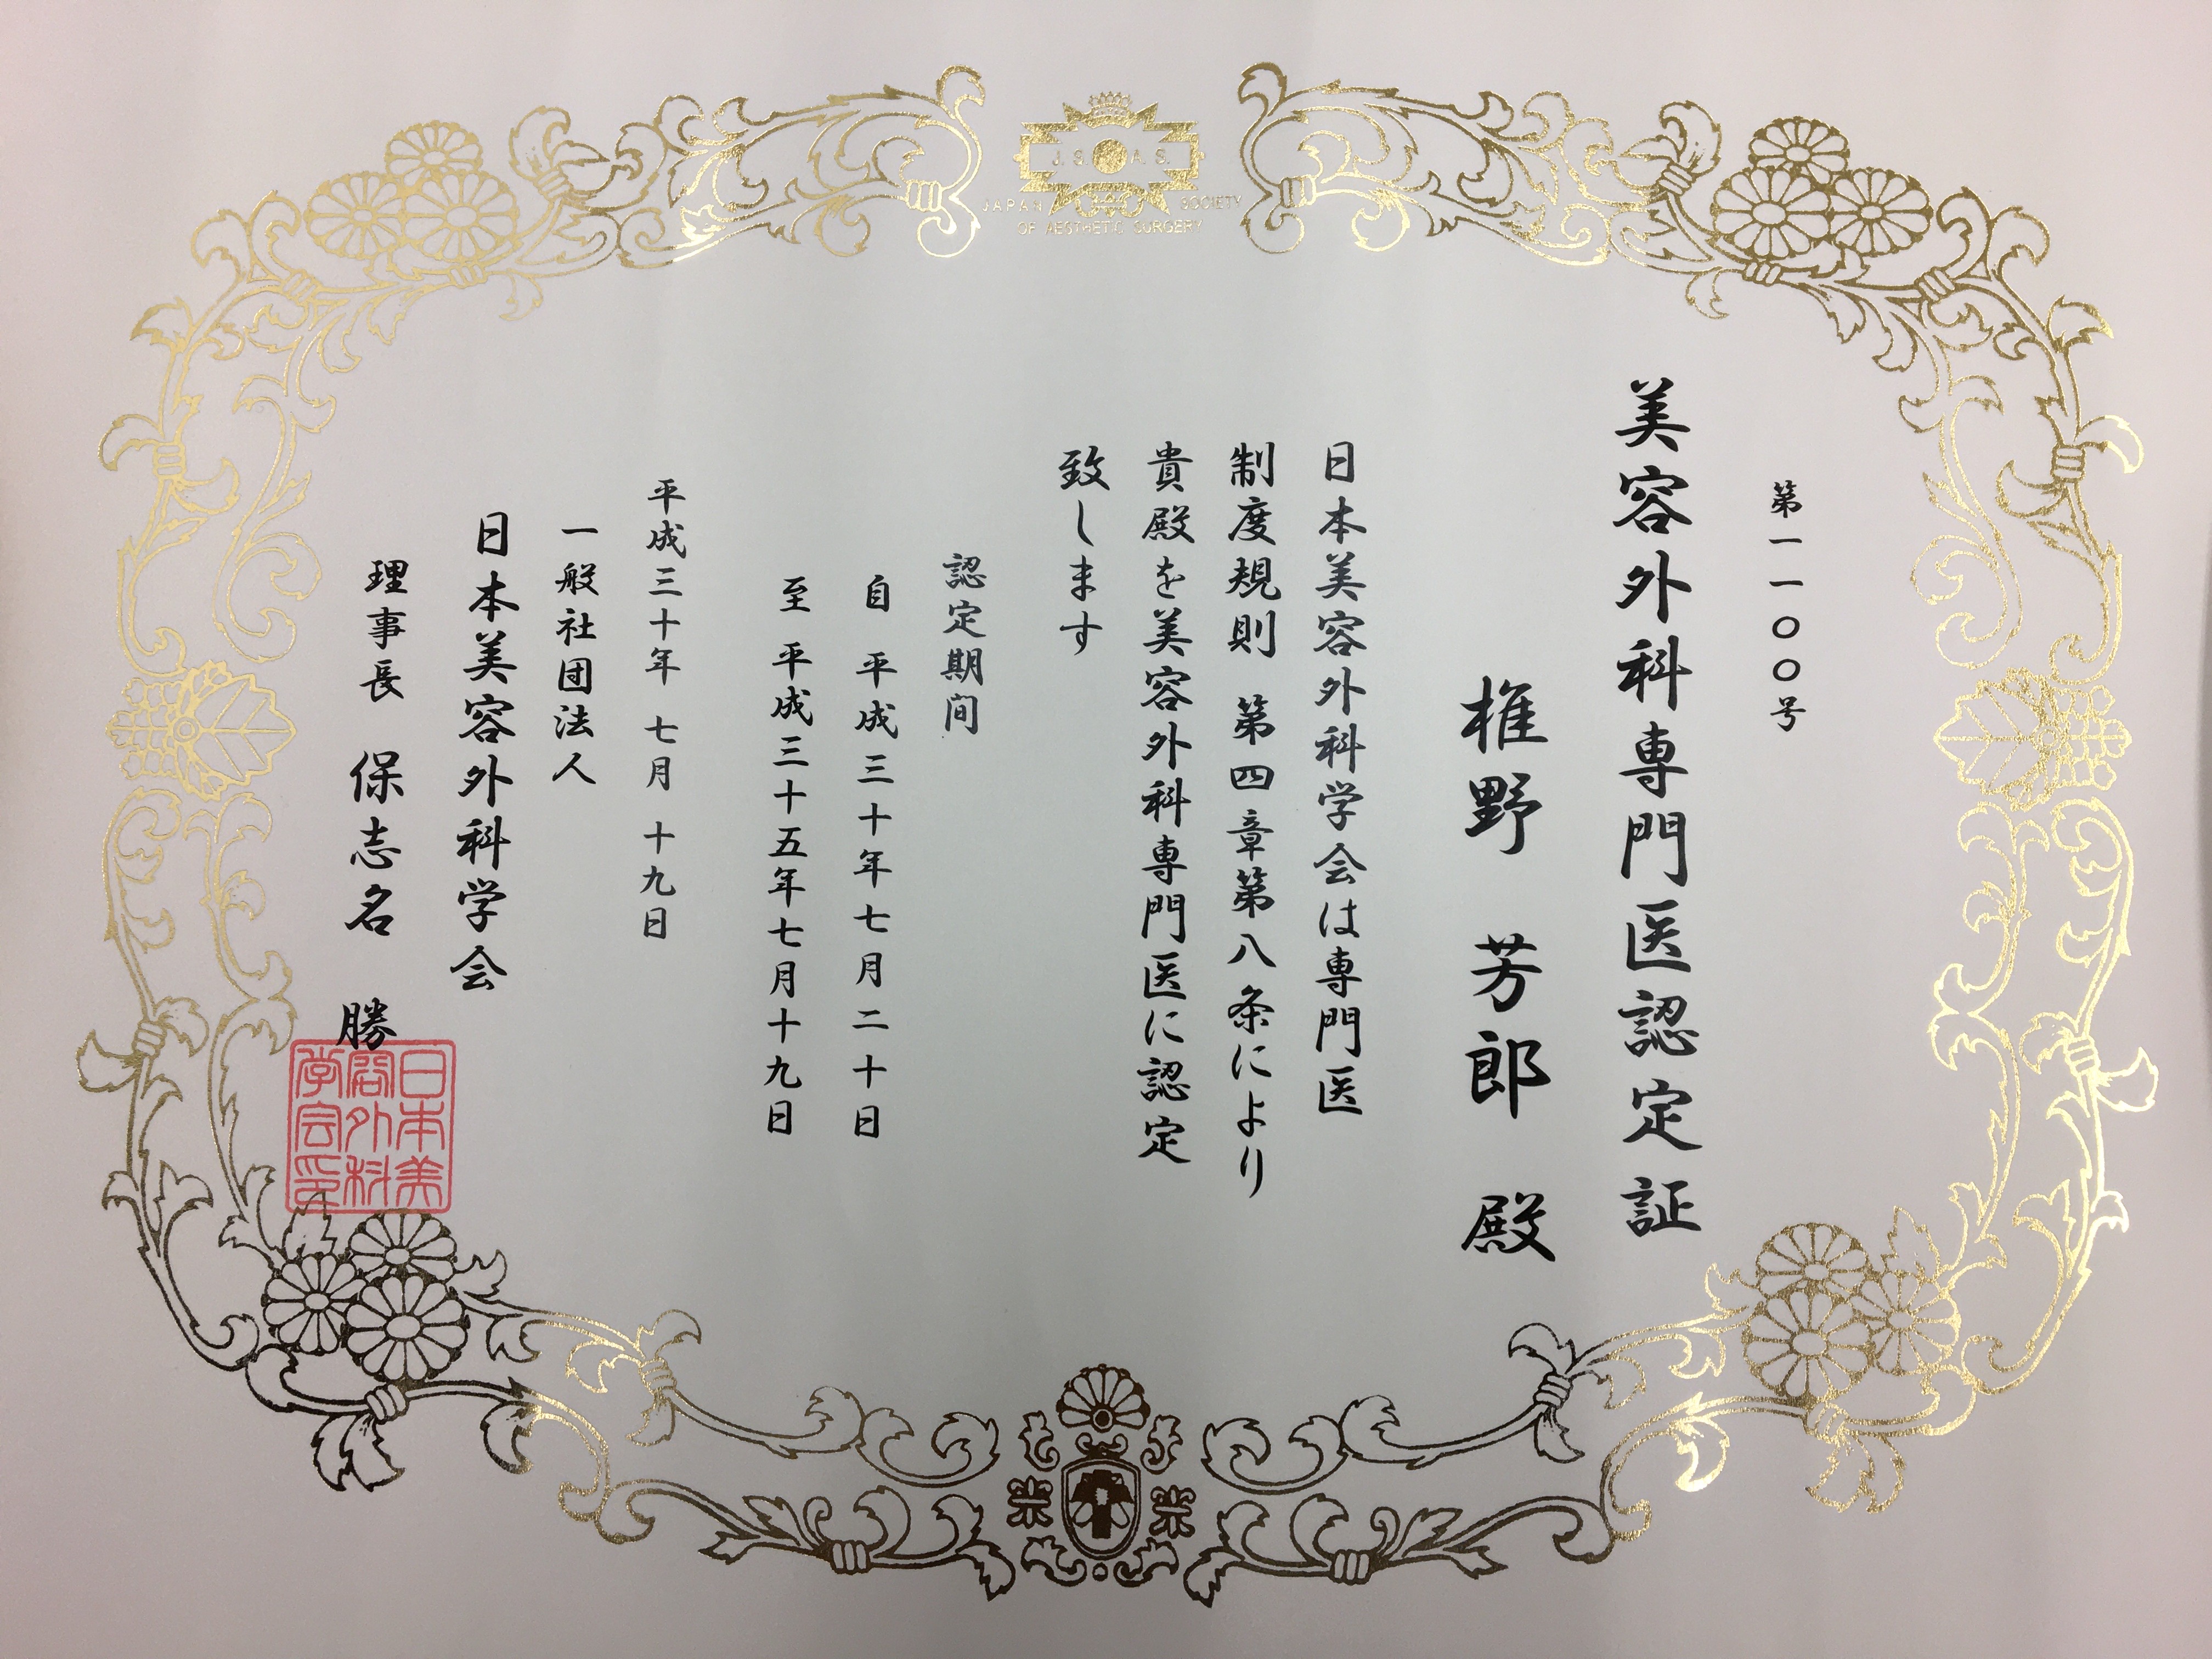 J. S. A. S.
JAPAN SOCIETY
OF AESTHETIC SURGERY
第一一〇〇号
美容外科専門医認定証
椎野 芳郎 殿
日本美容外科学会は専門医
制度規則 第四章第八条により
貴殿を美容外科専門医に認定
致します
認定期間
自 平成三十年七月二十日
至 平成三十五年七月十九日
平成三十年 七月 十九日
一般社団法人
日本美容外科学会
理事長 保志名 勝
日本美
容外科
学会印